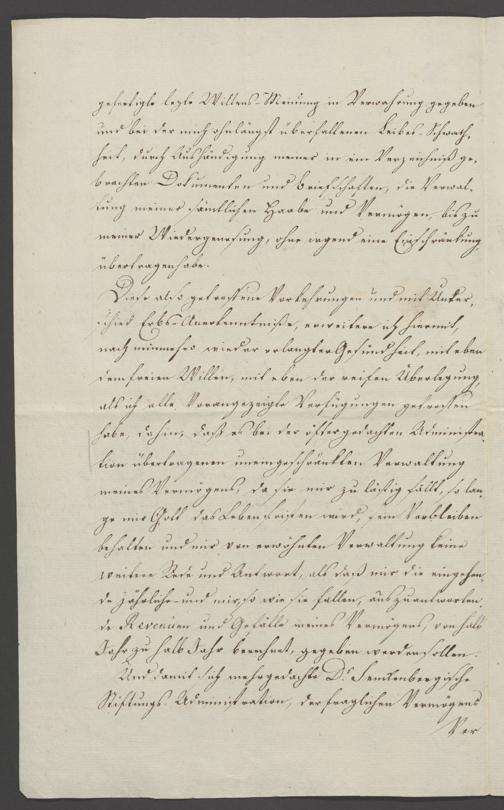 gefertigte lezte Willens-Meinung in Verwahrung gegeben
und bei der mich ohnlängst überfallenen Leibes-Schwach-
heit, durch Aushändigung meiner in ein Verzeichniß ge-
brachten Dokumenten und Briefschaften, die Verwal-
tung meiner sämtlichen Haabe und Vermögen, bis zu
meiner Wiedergenesung, ohne irgend eine Einschränkung
übertragen habe.
Diese also getroffene Vorkehrungen und mit Unter-
schied Erbs-Anerkenntniße, erweitere ich hiermit,
nach nunmehro wieder erlangter Gesundheit, mit eben
dem freien Willen, mit eben der reifen Überlegung,
als ich alle Vorangezeigte Verfügungen getroffen
habe, dahin, daß es bei der öftergedachten Administra-
tion übertragenen uneingeschränkten Verwaltung
meines Vermögens, da sie mir zu lästig fällt, so lan-
ge mir Gott das Leben fristen wird, sein Verbleiben
behalten und mir von erwähnter Verwaltung keine
weitere Rede und Antwort, als daß mir die eingehen-
de jährliche und mir, so wie sie fallen, auszuantworten-
de Revenüen und Gefälle meines Vermögens, von halb
Jahr zu halb Jahr berechnet, gegeben werden sollen.
Und damit sich mehrgedachte Dr. Senkenbergische
Stiftungs-Administration, der fraglichen Vermögens
Ver